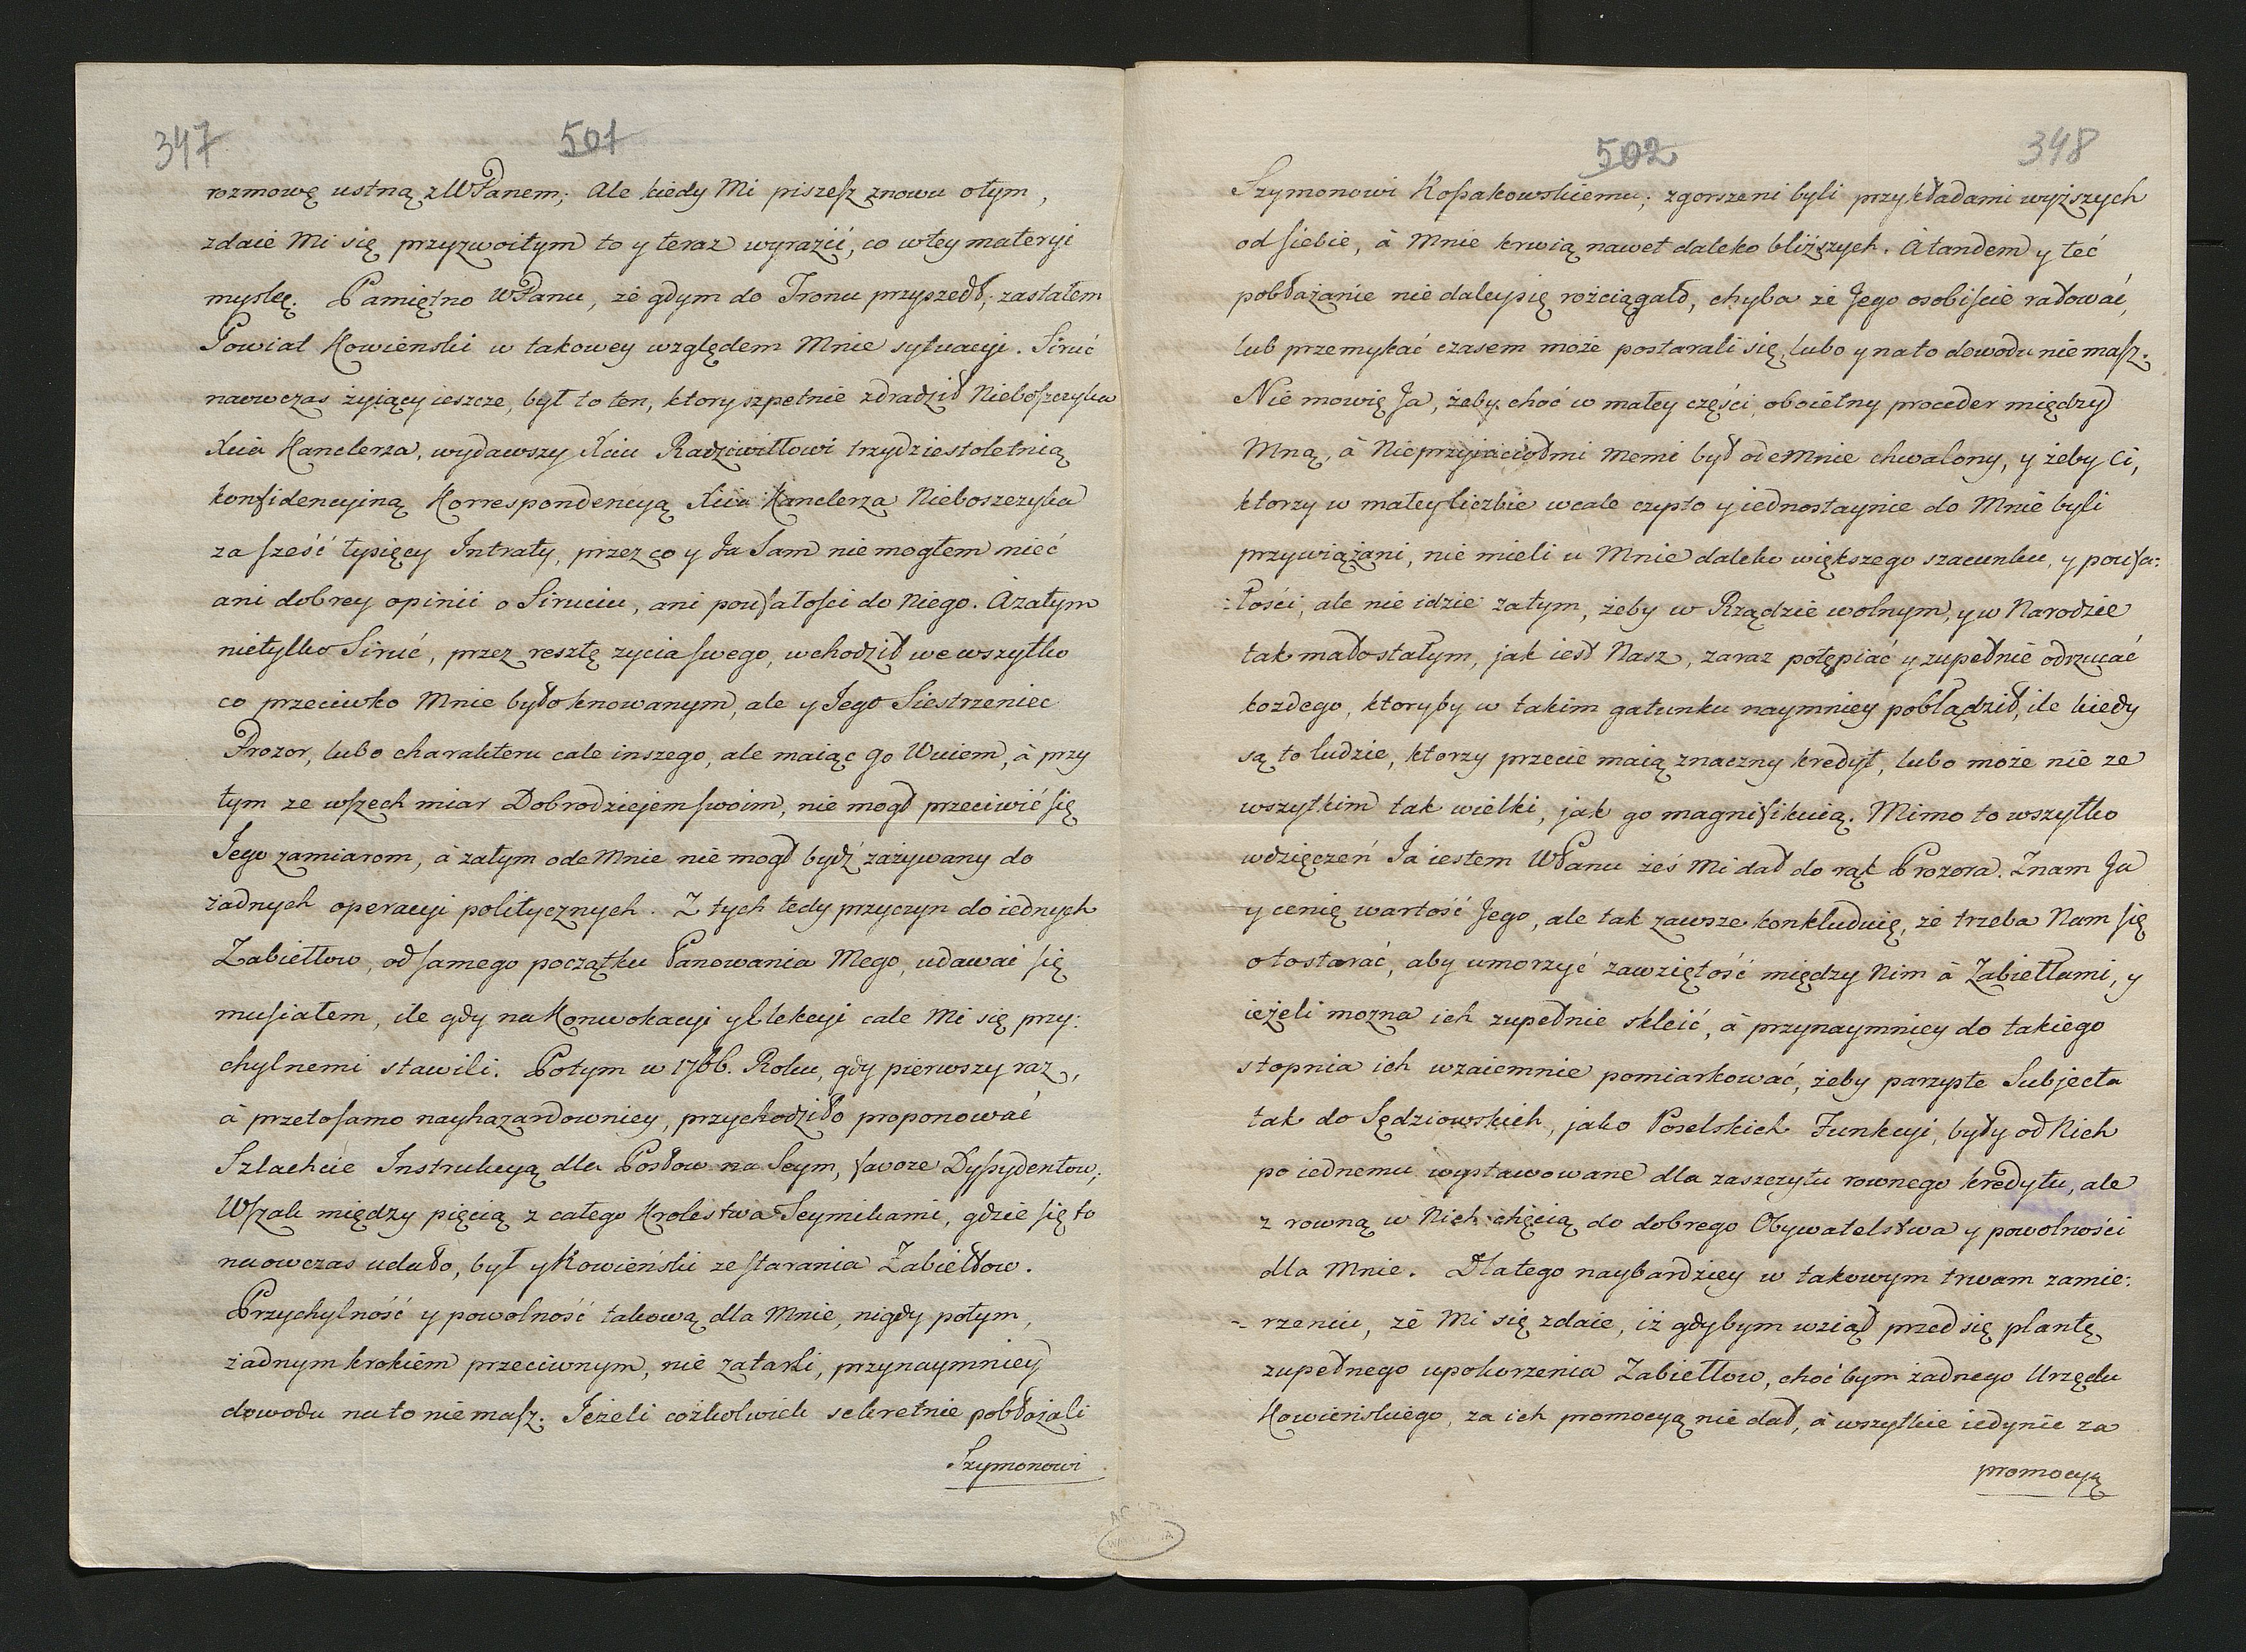 347
501
rozmowę ustną z WPanem; Ale kiedy Mi piszesz znowu otym,
zdaie Mi się przyzwoitym to y teraz wyrazić, co wtey materyi
myslę. Pamiętno WPanu, że gdym do Tronu przyszedł, zastałem
Powiat Kowieński w takowey względem Mnie sytuacyi. Siruć
naowczas żyiący ieszcze, był to ten, ktory szpetnie zdradził Nieboszczyka
Xcia Kanclerza, wydawszy Xciu Radziwiłłowi trzydziestoletnią
konfidencyiną Korrespondencyą Xcia Kanclerza Nieboszczyka
za sześć tysięcy Intraty, przez co y Ja Sam nie mogłem mieć
ani dobrey opinii o Siruciu, ani poufałości do Niego. A zatym
nietylko Siruć, przez resztę zycia swego, wchodził we wszytko
co przeciwko Mnie było knowanym, ale y Jego Siestrzeniec
Prozor, lubo charakteru cale inszego, ale maiąc go Wuiem, à przy
tym ze wszech miar Dobrodziejem swoim, nie mogł przeciwić się
Jego zamiarom, à zatym odeMnie nie mogł bydź zażywany do
żadnych operacyi politycznych. Z tych tedy przyczyn do iednych
Zabiełłow, od samego początku Panowania Mego, udawać się
musiałem, ile gdy na Konwokacyi y Elekcyi cale Mi się przy:
chylnemi stawili. Potym w 1766. Roku, gdy pierwszy raz,
à przeto samo nayhazardowniey, przychodziło proponować
Szlachcie Instrukcyą dla Posłow na Seym, favore Dyssydentow;
Wszak między pięcią z całego Krolestwa Seymikami, gdzie się to
naowczas udało, był y Kowieński ze starania Zabiełłow.
Przychylność y powolność takową dla Mnie, nigdy potym,
żadnym krokiem przeciwnym, nie zatarli, przynaymniey
dowodu na to nie masz. Jeżeli cożkolwiek sekretnie pobłażali
Szymonowi
502
348
Szymonowi Kossakowskiemu; zgorszeni byli przykładami wyższych
od siebie, à Mnie krwią nawet daleko bliższych. A tandem y teć
pobłażanie nie daley się rożciągało, chyba że Jego osobiście ratować,
lub przemykać czasem może postarali się, lubo y na to dowodu nie masz.
Nie mowię Ja, żeby choć w małey części, oboiętny proceder między
Mną, à Nieprzyiaciołmi memi był odeMnie chwalony, y żeby Ci,
ktorzy w małey liczbie wcale czysto y iednostaynie do Mnie byli
przywiążani, nie mieli u Mnie daleko większego szacunku, y poufa:
:łości, ale nie idzie zatym, żeby w Rządzie wolnym, y w Narodzie
tak mało stałym, jak iest Nasz, zaraz potępiać y zupełnie odrzucać
kożdego, ktoryby w takim gatunku naymniey pobłądził, ile kiedy
są to ludzie, ktorzy przecie maią znaczny kredyt, lubo może nie ze
wszytkim tak wielki, jak go magnifikuią. Mimo to wszytko
wdzięczeń Ja iestem WPanu żeś Mi dał do rąk Prozora. Znam Ja
y cenię wartość Jego, ale tak zawsze konkluduię, że trzeba Nam się
o to starać, aby umorzyć zawziętość między Nim à Zabiełłami, y
ieżeli mozna ich zupełnie skleić, à przynaymniey do takiego
stopnia ich wzaiemnie pomiarkować, żeby parzyste Subjecta
tak do Sędziowskich, jako Poselskich Funkcyi, były od Nich
po iednemu wystawowane dla zaszczytu rownego kredytu, ale
z rowną w Nich chęcią do dobrego Obywatelstwa y powolności
dla Mnie. Dlatego naybardziey w takowym trwam zamie:
- rzeniu, że Mi się zdaie, iż gdybym wziął przed się plantę
zupełnego upokorzenia Zabiełłow, choć bym żadnego Urzędu
Kowieńskiego, za ich promocyą nie dał, à wszytkie iedynie za
promocyą